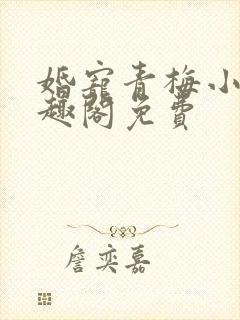 婚宠青梅小
趣阁免费
詹奕嘉